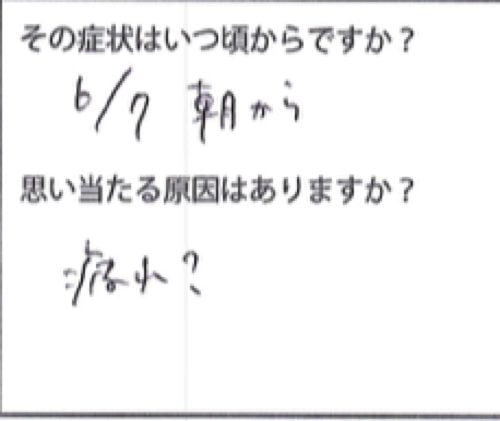 その症状はいつ頃からですか？
6/7 朝から
思い当たる原因はありますか？
疲れ？